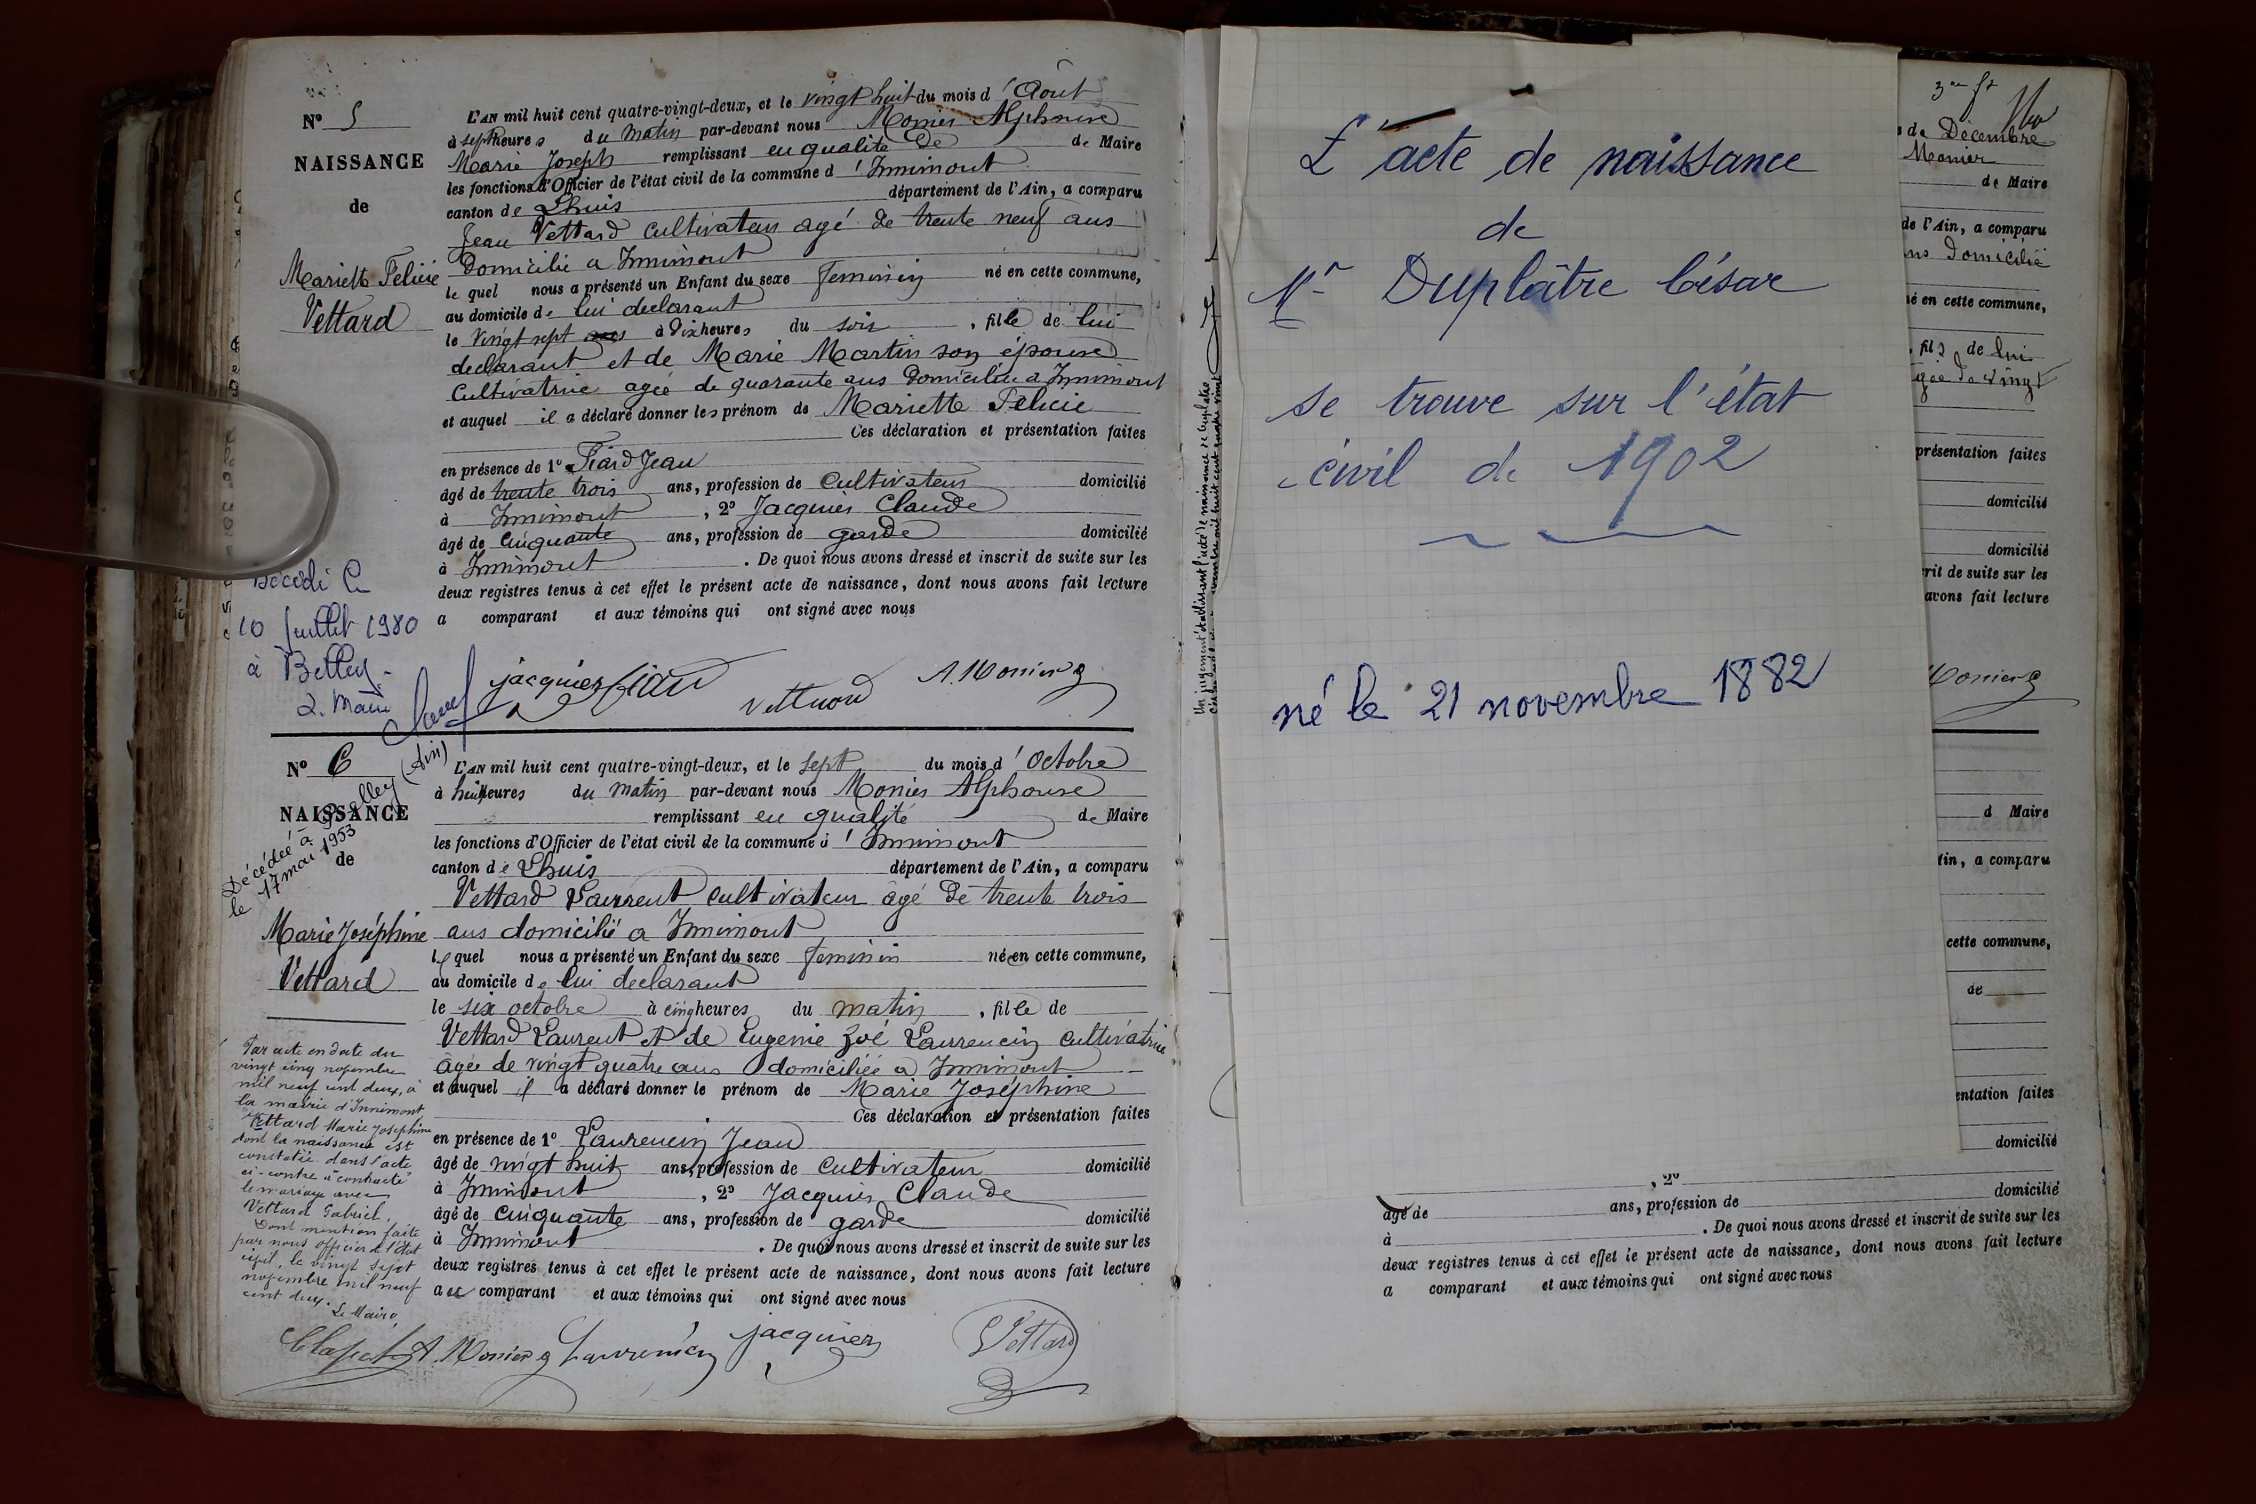 N° 5
NAISSANCE
de
Mariette Felicie
Vettard
L'AN mil huit cent quatre-vingt-deux, et le vingt huit du mois d'Août
à sept heures du matin par-devant nous Monier Alphonse
Marie Joseph remplissant en qualité de de Maire
les fonctions d'Officier de l'état civil de la commune d'Innimont
canton de Lhuis département de l'Ain, a comparu
Jean Vettard cultivateur agé de trente neuf ans
Domicilié a Innimont
le quel nous a présenté un Enfant du sexe feminin né en cette commune,
au domicile de lui declarant
le vingt sept à dix heures du soir, fille de lui
declarant et de Marie Martin son épouse
Cultivatrice agée de quarante ans Domiciliée a Innimont
et auquel il a déclaré donner les prénom de Mariette Felicie
Ces déclaration et présentation faites
en présence de 1° Fiard Jean
âgé de trente trois ans, profession de Cultivateur domicilié
à Innimont, 2° Jacquier Claude
âgé de Cinquante ans, profession de garde domicilié
à Innimont. De quoi nous avons dressé et inscrit de suite sur les
deux registres tenus à cet effet le présent acte de naissance, dont nous avons fait lecture
a comparant et aux témoins qui ont signé avec nous
jacquier Fiard Vettard A. Monier
10 Juillet 1980
à Belley
N° 6
NAISSANCE
de
Marie Joséphine
Vettard
Décédée à Belley (Ain)
le 17 mai 1953
L'AN mil huit cent quatre-vingt-deux, et le sept du mois d'Octobre
à huit heures du matin par-devant nous Monier Alphonse
remplissant en qualité de Maire
les fonctions d'Officier de l'état civil de la commune d'Innimont
canton de Lhuis département de l'Ain, a comparu
Vettard Laurent cultivateur âgé de trente trois
ans domicilié a Innimont
le quel nous a présenté un Enfant du sexe feminin née en cette commune,
au domicile de lui declarant
le six octobre à cinq heures du matin, fille de
Vettard Laurent et de Eugenie Zoé Laurencin cultivatrice
âgée de vingt quatre ans domiciliée a Innimont
et auquel il a déclaré donner le prénom de Marie Joséphine
Ces déclaration et présentation faites
en présence de 1° Laurencin Jean
âgé de vingt huit ans, profession de cultivateur domicilié
à Innimont, 2° Jacquier Claude
âgé de cinquante ans, profession de garde domicilié
à Innimont. De quoi nous avons dressé et inscrit de suite sur les
deux registres tenus à cet effet le présent acte de naissance, dont nous avons fait lecture
au comparant et aux témoins qui ont signé avec nous
Par acte en date du
vingt cinq novembre
mil neuf cent deux, à
la mairie d'Innimont
Vettard Marie Joséphine
dont la naissance est
constatée dans l'acte
ci-contre a contracté
le mariage avec
Vettard Gabriel.
Dont mention faite
par nous officier de l'état
civil, le vingt sept
novembre mil neuf
cent deux. Le Maire,
A. Monier Laurencin jacquier Vettard
L'acte de naissance
de
Mr Duplâtre César
se trouve sur l'état
civil de 1902
né le 21 novembre 1882
Un jugement établissant l'acte de naissance de Duplatre
de Décembre
Monier
de Maire
de l'Ain, a comparu
ns Domicilié
né en cette commune,
fils de lui
gée de vingt
présentation faites
domicilié
domicilié
rit de suite sur les
avons fait lecture
Monier
d Maire
in, a comparu
cette commune,
de
entation faites
domicilié
, 2°
âgé de ans, profession de domicilié
à . De quoi nous avons dressé et inscrit de suite sur les
deux registres tenus à cet effet le présent acte de naissance, dont nous avons fait lecture
a comparant et aux témoins qui ont signé avec nous